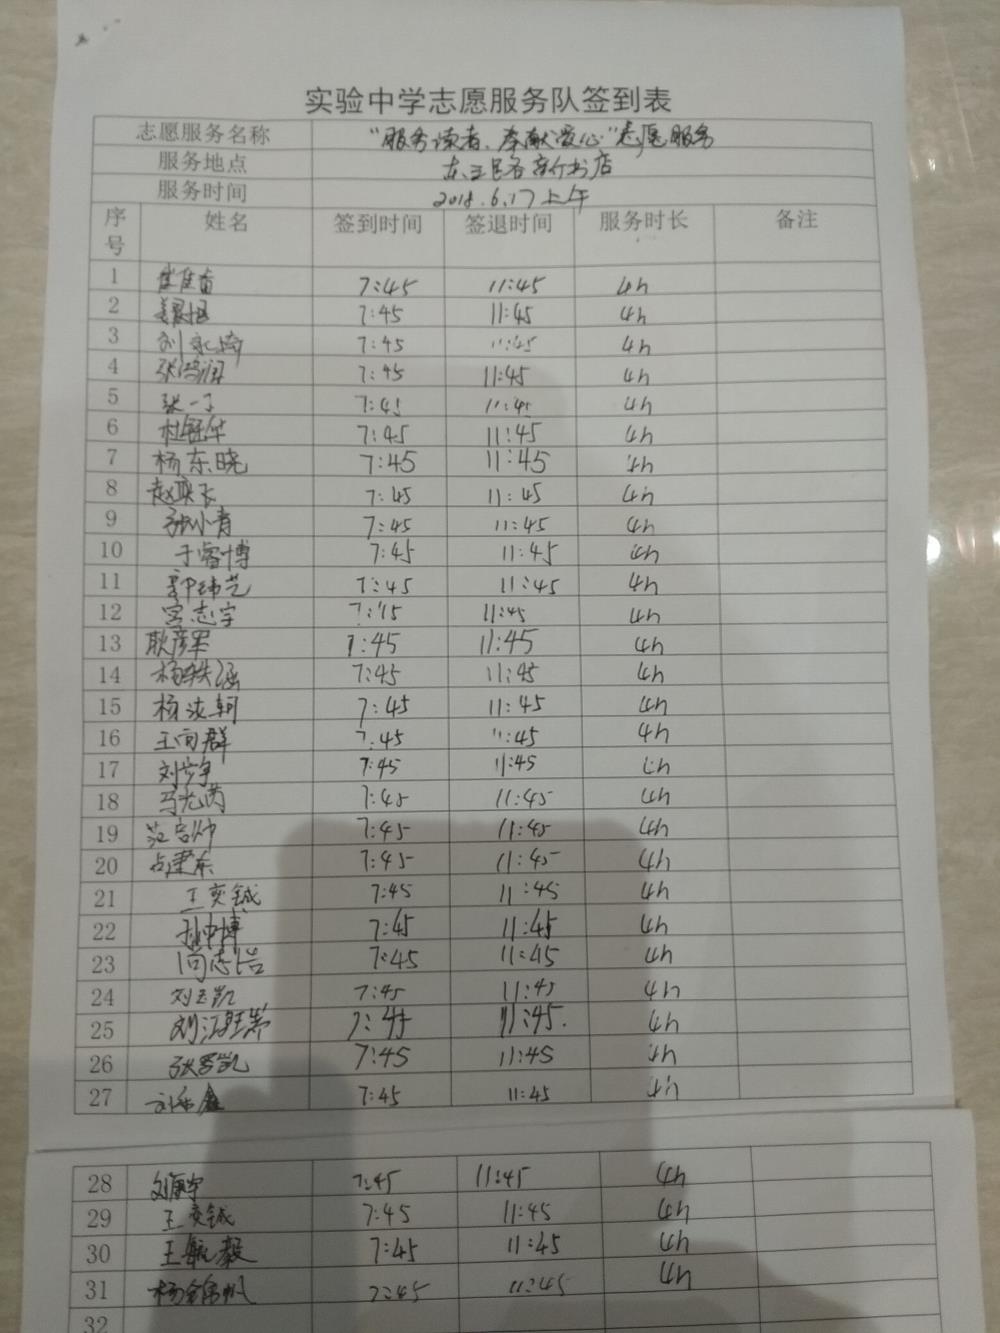 实验中学志愿服务队签到表
志愿服务名称 "服务读者、奉献爱心"志愿服务
服务地点 东三吕各新书店
服务时间 2018.6.17上午
序号 姓名 签到时间 签退时间 服务时长 备注
1 7:45 11:45 4h
2 7:45 11:45 4h
3 7:45 11:45 4h
4 张鸿润 7:45 11:45 4h
5 张一丁 7:45 11:45 4h
6 杜钰华 7:45 11:45 4h
7 杨东晓 7:45 11:45 4h
8 7:45 11:45 4h
9 张小青 7:45 11:45 4h
10 于睿博 7:45 11:45 4h
11 郭玮艺 7:45 11:45 4h
12 宫志宇 7:45 11:45 4h
13 耿彦军 7:45 11:45 4h
14 杨轶涵 7:45 11:45 4h
15 杨凌轲 7:45 11:45 4h
16 王向群 7:45 11:45 4h
17 7:45 11:45 4h
18 马龙芮 7:45 11:45 4h
19 7:45 11:45 4h
20 7:45 11:45 4h
21 王奕铖 7:45 11:45 4h
22 孙中博 7:45 11:45 4h
23 尚志浩 7:45 11:45 4h
24 刘玉凯 7:45 11:45 4h
25 7:45 11:45. 4h
26 7:45 11:45 4h
27 7:45 11:45 4h
28 7:45 11:45 4h
29 王奕铖 7:45 11:45 4h
30 王毓毅 7:45 11:45 4h
31 7:45 11:45 4h
32